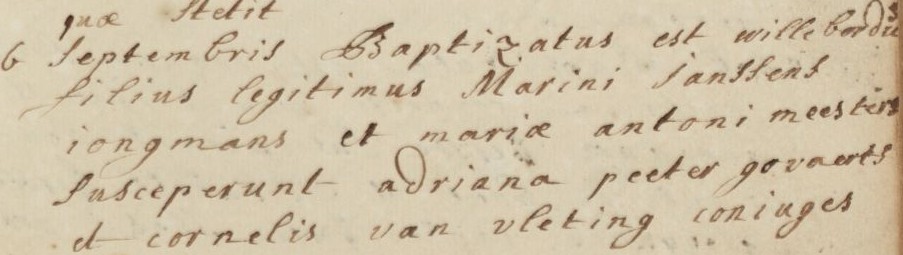 quæ Stetit
6 Septembris Baptizatus est willebordus
filius legitimus Marini Janssens
iongmans et mariæ antoni meesters
Susceperunt adriana peeter govaerts
et cornelis van vleting coniuges